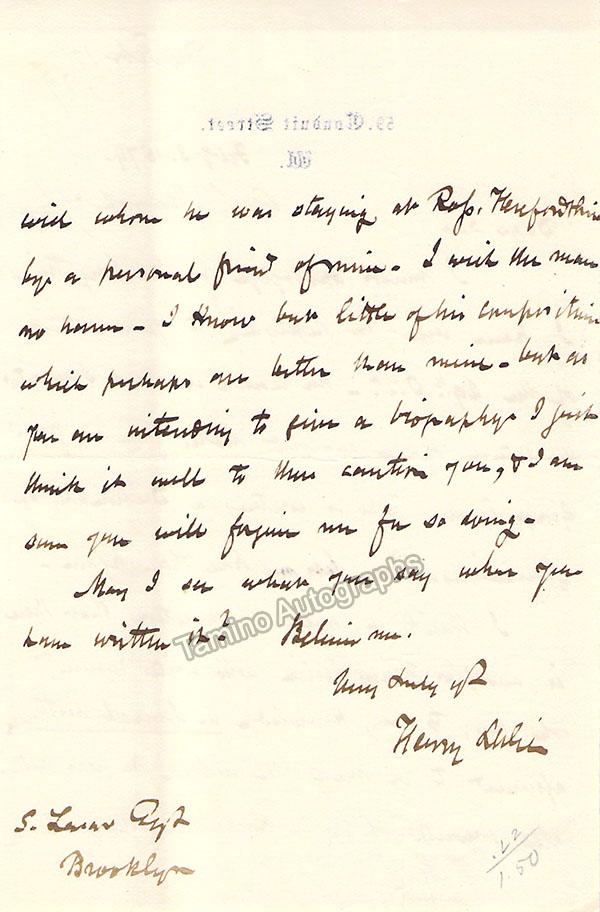 59. Conduit Street.
W.
with whom he was staying at Ross. Herefordshire
by a personal friend of mine - I wish the man
no harm - I know but little of his compositions
which perhaps are better than mine - but as
you are intending to give a biography I just
think it well to thus caution you, & I am
sure you will forgive me for so doing -
May I see what you say when you
have written it? Believe me.
Very truly yrs
Henry Leslie
S. Lasar Esqr
Brooklyn
.22
1.50
Tamino Autographs